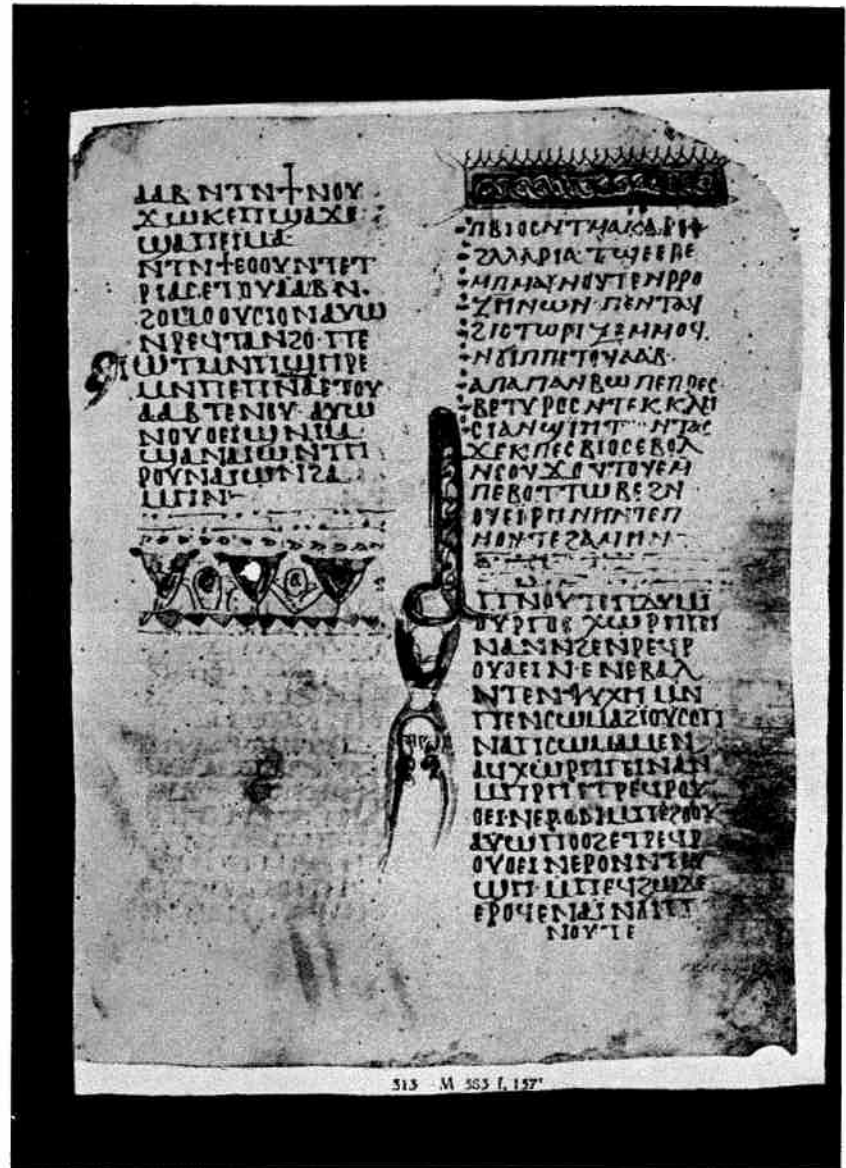 ⲁⲁⲃ ⲛⲧⲛϯⲛⲟⲩ
ϫⲱⲕ ⲉⲡϣⲁϫⲉ
ϣⲁⲡⲉⲓⲙⲁ
ⲛⲧⲛϯⲉⲟⲟⲩ ⲛⲧⲉⲧ
ⲣⲓⲁⲥ ⲉⲧⲟⲩⲁⲁⲃ ⲛ
ϩⲟⲙⲟⲟⲩⲥⲓⲟⲛ ⲁⲩⲱ
ⲛⲣⲉϥⲧⲁⲛϩⲟ ⲡⲉ
ⲓⲱⲧ ⲙⲛⲡϣⲏⲣⲉ
ⲙⲛⲡⲉⲡⲛⲁ ⲉⲧⲟⲩ
ⲁⲁⲃ ⲧⲉⲛⲟⲩ ⲁⲩⲱ
ⲛⲟⲩⲟⲉⲓϣ ⲛⲓⲙ
ϣⲁⲛⲁⲓⲱⲛ ⲧⲏ
ⲣⲟⲩ ⲛⲛⲁⲓⲱⲛ ϩⲁ
ⲙⲏⲛ
ⲡⲃⲓⲟⲥ ⲛⲧⲙⲁⲕⲁⲣⲓⲁ
ϩⲗⲗⲁⲣⲓⲁ ⲧϣⲉⲉⲣⲉ
ⲙⲡⲙⲁⲓⲛⲟⲩⲧⲉ ⲛⲣⲣⲟ
ⲍⲏⲛⲱⲛ ⲡⲉⲛⲧⲁϥ
ϩⲓⲥⲧⲱⲣⲓⲍⲉ ⲙⲙⲟϥ
ⲛϭⲓ ⲡⲡⲉⲧⲟⲩⲁⲁⲃ
ⲁⲡⲁ ⲡⲁⲙⲃⲱ ⲡⲉⲡⲣⲉⲥ
ⲃⲩⲧⲉⲣⲟⲥ ⲛⲧⲉⲕⲕⲗⲏ
ⲥⲓⲁ ⲛϣⲓⲏⲧ ⲛⲧⲁⲥ
ϫⲉⲕ ⲡⲉⲥⲃⲓⲟⲥ ⲉⲃⲟⲗ
ⲛⲥⲟⲩϫⲟⲩⲧⲟⲩⲉ ⲙ
ⲡⲉⲃⲟⲧ ⲧⲱⲃⲉ ϩⲛ
ⲟⲩⲉⲓⲣⲏⲛⲏ ⲛⲧⲉⲡ
ⲛⲟⲩⲧⲉ ϩⲁⲙⲏⲛ
ⲡⲛⲟⲩⲧⲉ ⲡⲇⲩⲙⲓ
ⲟⲩⲣⲅⲟⲥ ⲭⲱⲣⲏⲅⲓ
ⲛⲁⲛ ⲛϩⲉⲛⲣⲉϥⲣ
ⲟⲩⲟⲉⲓⲛ ⲉⲛⲉⲃⲁⲗ
ⲛⲧⲉⲛⲯⲩⲭⲏ ⲙⲛ
ⲡⲉⲛⲥⲱⲙⲁ ϩⲓⲟⲩⲥⲟⲡ
ⲛⲁⲡⲥⲱⲙⲁ ⲙⲉⲛ
ⲁϥⲭⲱⲣⲏⲅⲉⲓ ⲛⲁⲛ
ⲙⲡⲣⲏ ⲉⲧⲣⲉϥⲣⲟⲩ
ⲟⲉⲓⲛ ⲉⲣⲟⲛ ⲙⲡⲉϩⲟⲟⲩ
ⲁⲩⲱ ⲡⲟⲟϩ ⲉⲧⲣⲉϥⲣ
ⲟⲩⲟⲉⲓⲛ ⲉⲣⲟⲛ ⲛⲧⲉⲩ
ϣⲏ ⲙⲡⲉϥϩⲱ ϫⲉ
ⲉⲣⲟϥ ⲉⲛⲁⲓ ⲛϭⲓⲡ
ⲛⲟⲩⲧⲉ
313 M 583 f. 157ʳ